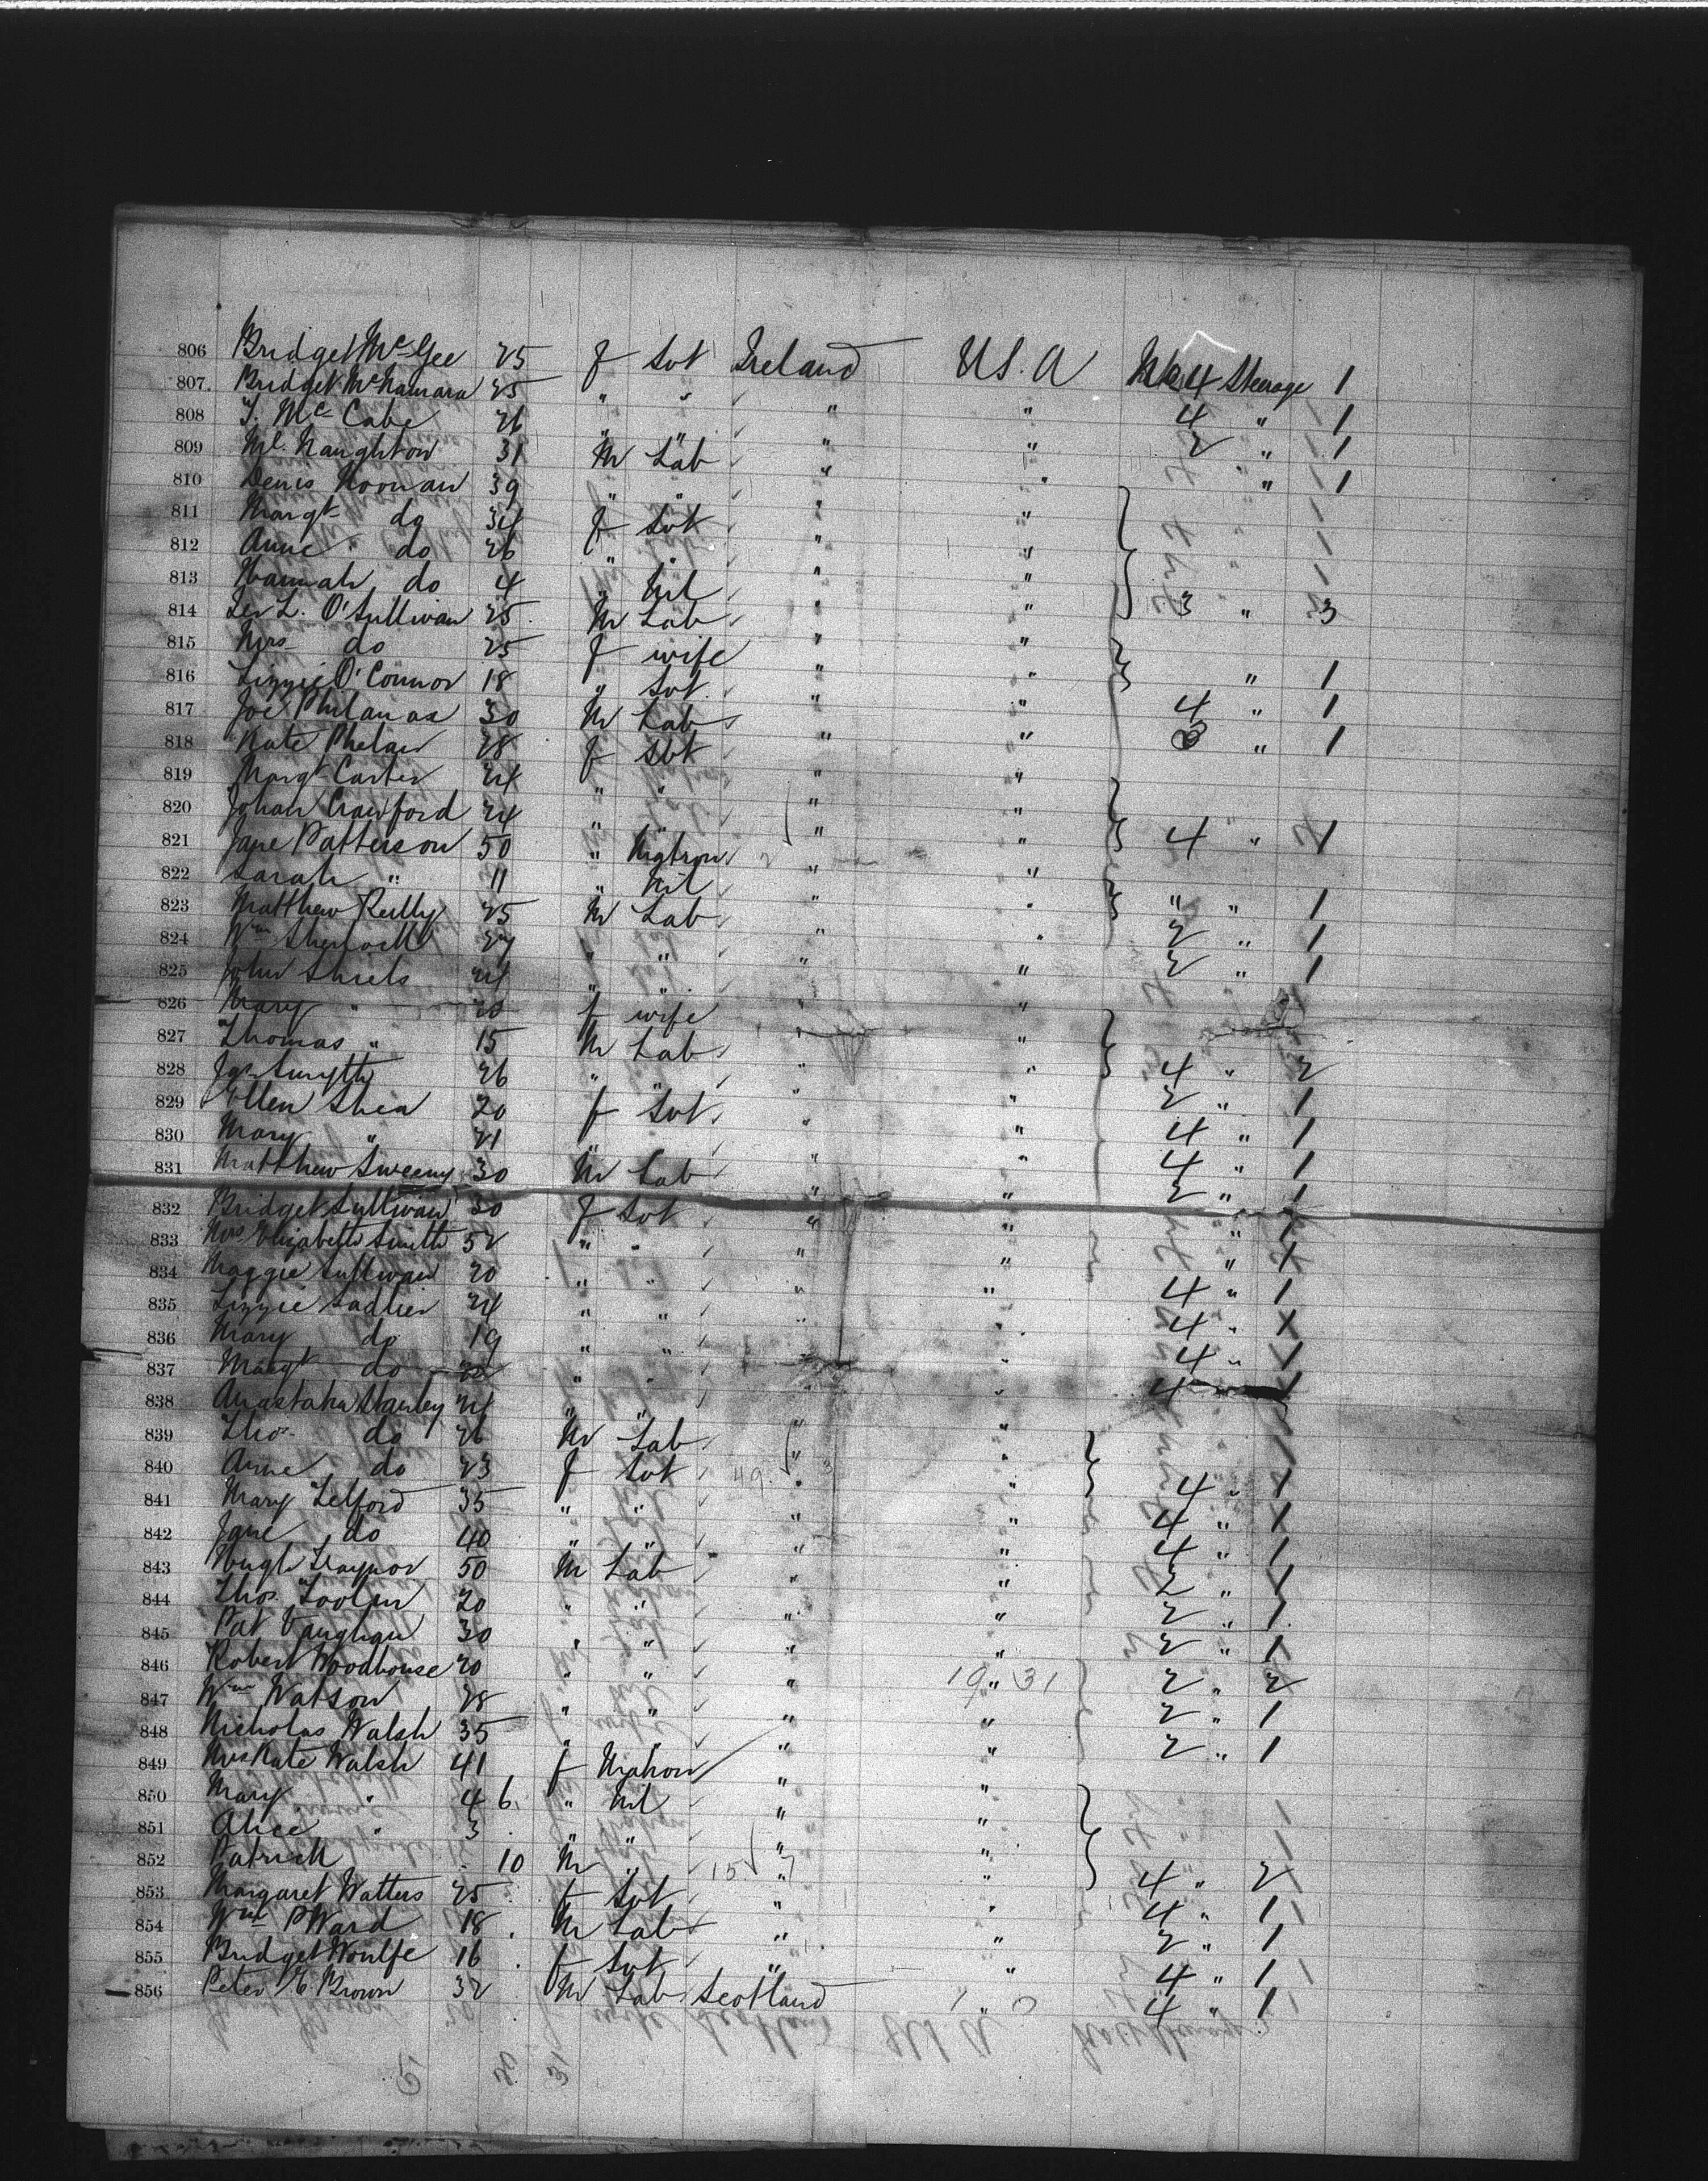 806 Bridget McGee 25 f Svt Ireland U.S.A No 4 Steerage 1
807. Bridget McNamara 25 " " " " 4 " 1
808 T. McCabe 26 " " " " 2 " 1
809 Ml. Naughton 31 M Lab " " " " 1
810 Denis Noonan 39 " " " "
811 Margt do 34 f Svt " "
812 Anne do 26 " " " "
813 Hannah do 4 " Nil " " 3 " 3
814 L. O'Sullivan 25 M Lab " "
815 Mrs do 25 f wife " " " 1
816 Lizzie O'Connor 18 " Svt " " 4 " 1
817 Joe 30 M Lab " " " 1
818 Kate Phelan 28 f Svt " "
819 Margt Carter 24 " " " "
820 Johan Crawford 24 " " " " 4 " 1
821 Jane Patterson 50 " Matron " "
822 Sarah " 11 " Nil " " " " 1
823 Matthew Reilly 25 M Lab " " 2 " 1
824 Wm Sherlock 27 " " " " 2 " 1
825 John Shiels 24 " " " "
826 Mary " 20 f wife " "
827 Thomas " 15 M Lab " " 4 " 2
828 Jas Smyth 26 " " " " 2 " 1
829 Ellen Shea 20 f Svt " " 4 " 1
830 Mary " 21 " " " " 4 " 1
831 Matthew Sweeny 30 M Lab " " 2 " 1
832 Bridget Sullivan 30 f Svt " " " 1
833 Mrs Elizabeth Smith 52 " " " " " 1
834 Maggie Sullivan 20 " " " " 4 " 1
835 Lizzie Sadlier 24 " " " " 4 " 1
836 Mary do 19 " " " " 4 " 1
837 Margt do 22 " " " " 4 1
838 Anastatia Stanley 24 " " " "
839 Thos do 26 M Lab " "
840 Anne do 23 f Svt 49 " " 4 " 1
841 Mary Telford 35 " " " " 4 " 1
842 Jane do 40 " " " " 4 " 1
843 Hugh Traynor 50 M Lab " " 2 " 1
844 Thos. 20 " " " " 2 " 1
845 Pat Vaughan 30 " " " " 2 " 1
846 Robert Woodhouse 20 " " " 19 " 31 2 " 2
847 Wm Watson 28 " " " " 2 " 1
848 Nicholas Walsh 35 " " " " 2 " 1
849 Mrs Kate Walsh 41 f Matron " "
850 Mary " 4 6 " Nil " "
851 Alice " 3 " " " "
852 Patrick 10 M " 15 " " 4 " 2
853 Margaret Watters 25 f Svt " " 4 " 1
854 Wm P Ward 18 M Lab " " 2 " 1
855 Bridget Woulfe 16 f Svt " " 4 " 1
856 Peter Brown 32 M Lab Scotland 1 " 0 4 " 1